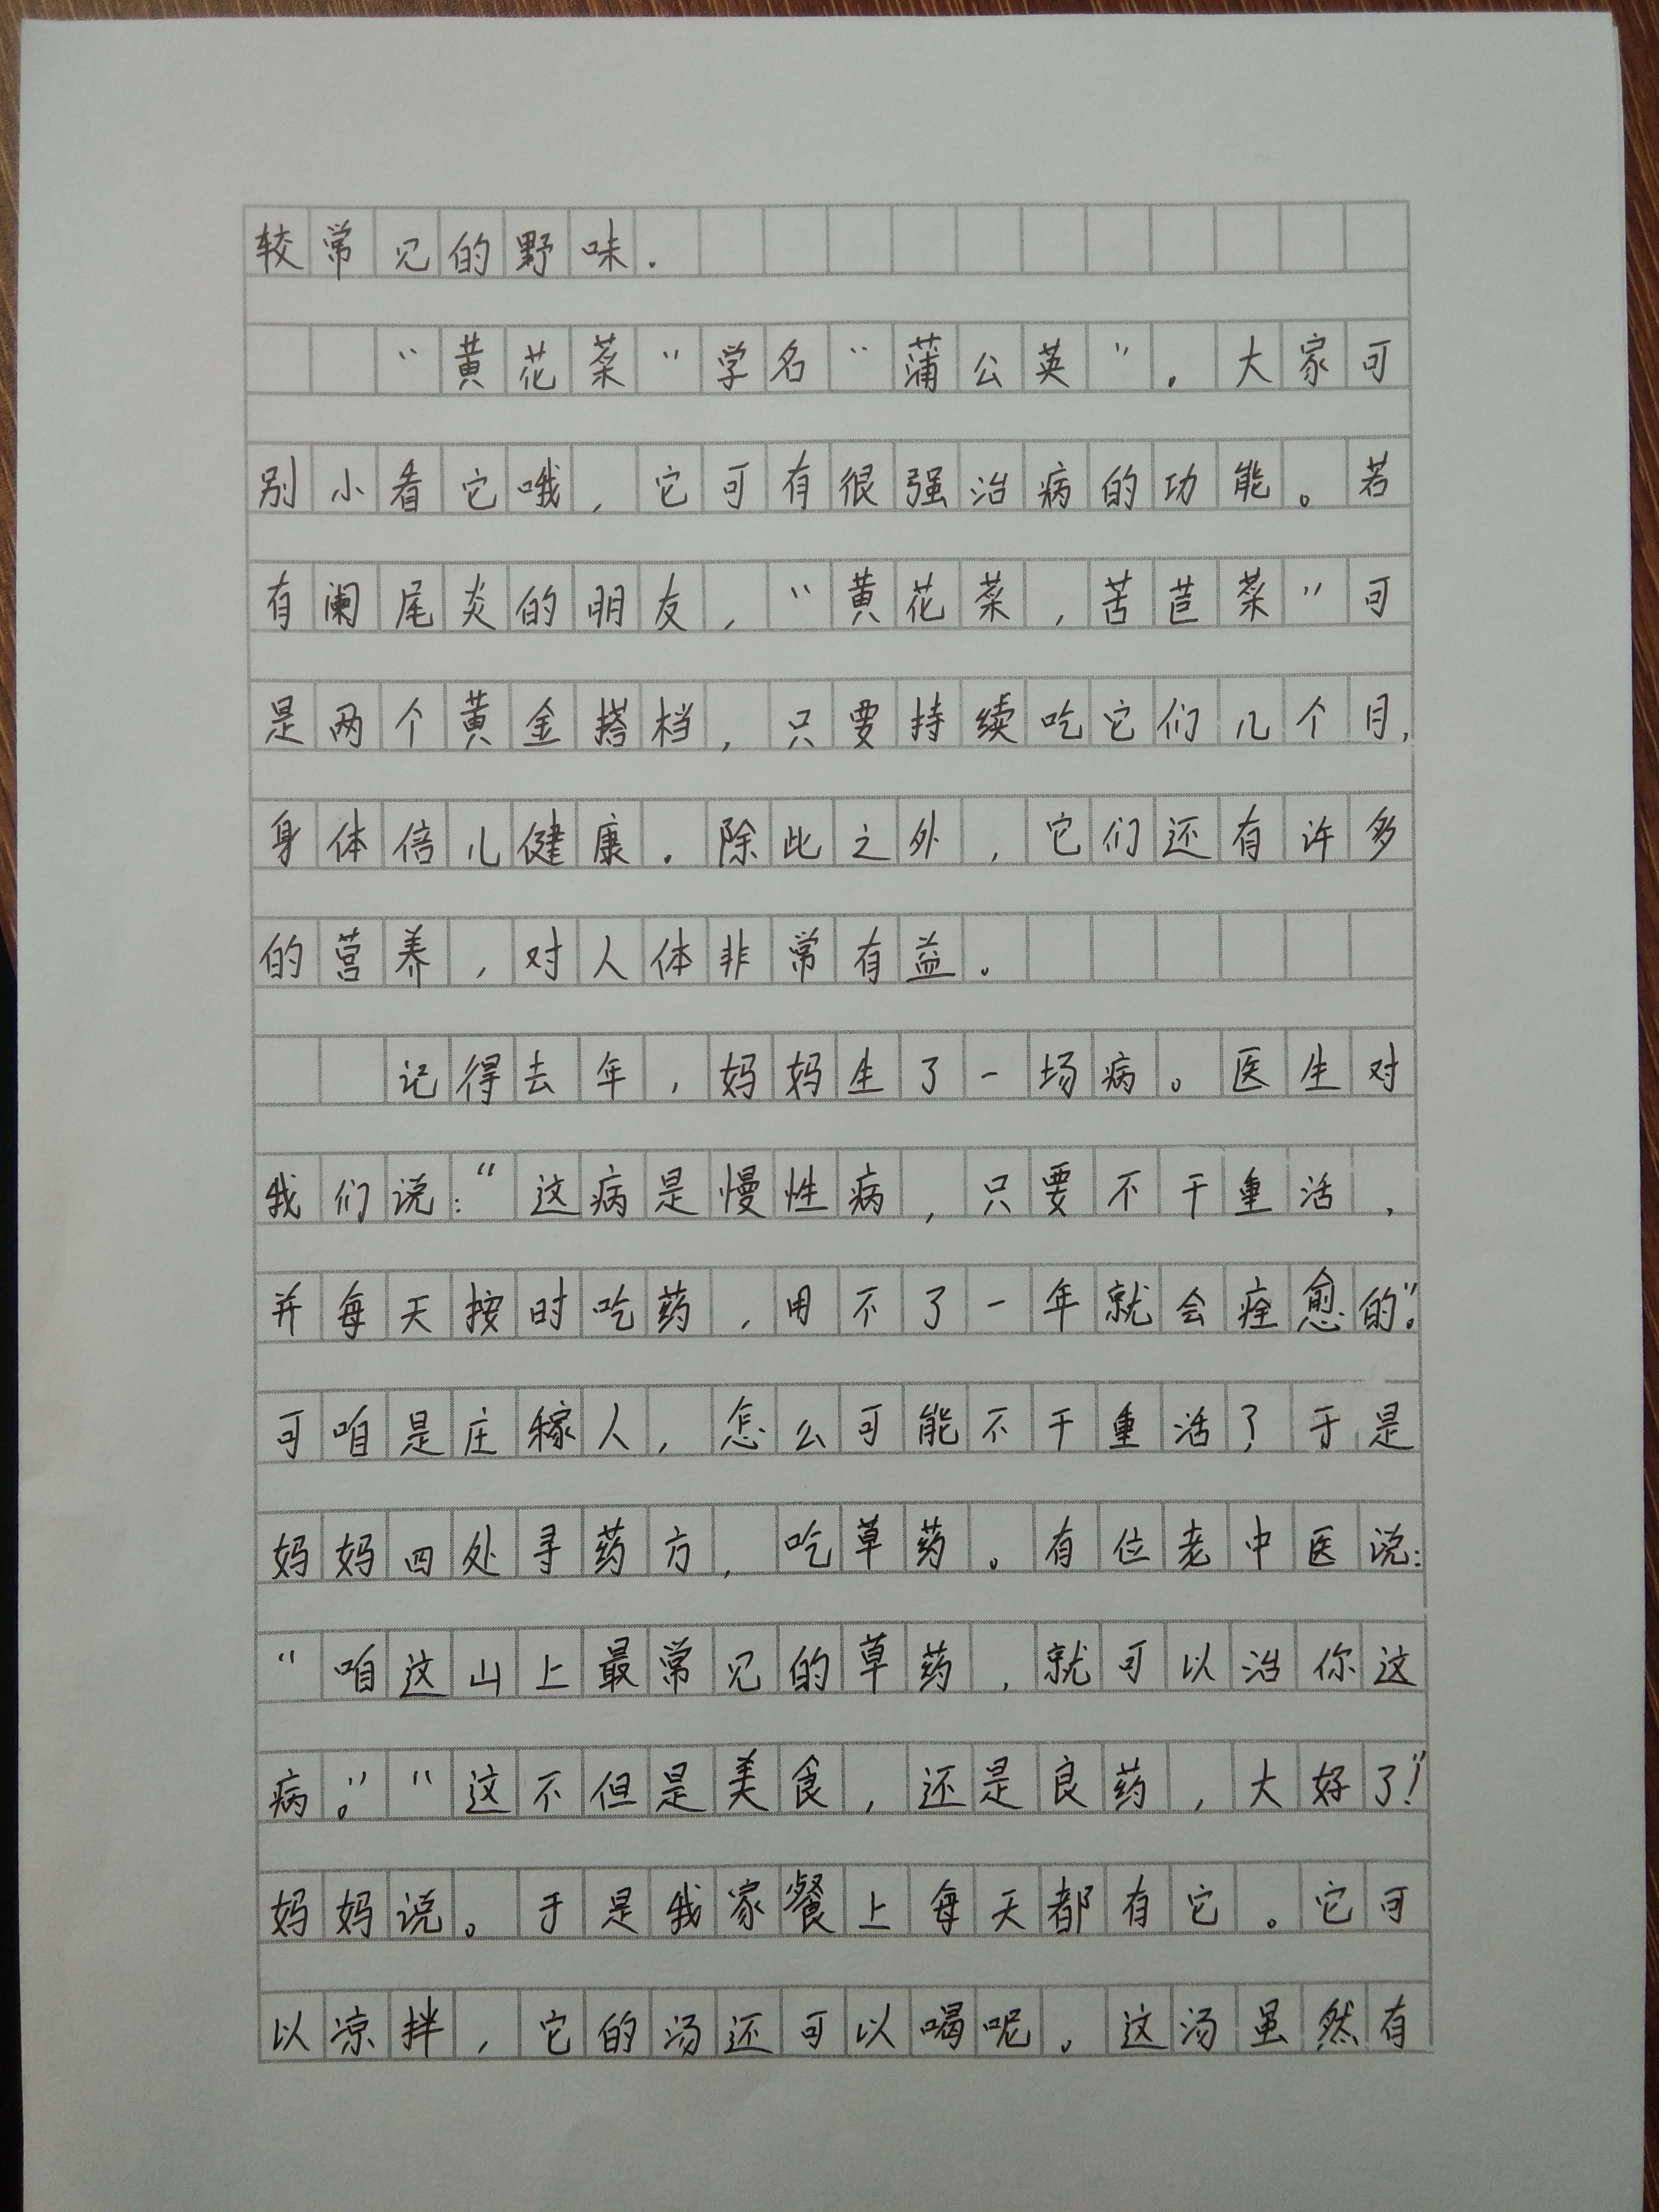 较常见的野味.
“黄花菜”学名“蒲公英”.大家可
别小看它哦,它可有很强治病的功能。若
有阑尾炎的朋友,“黄花菜,苦苣菜”可
是两个黄金搭档,只要持续吃它们几个月,
身体倍儿健康.除此之外,它们还有许多
的营养,对人体非常有益。
记得去年,妈妈生了一场病。医生对
我们说:“这病是慢性病,只要不干重活,
并每天按时吃药,用不了一年就会痊愈的”。
可咱是庄稼人,怎么可能不干重活?于是
妈妈四处寻药方,吃草药。有位老中医说:
“咱这山上最常见的草药,就可以治你这
病。”“这不但是美食,还是良药,大好了!”
妈妈说。于是我家餐上每天都有它。它可
以凉拌,它的汤还可以喝呢。这汤虽然有